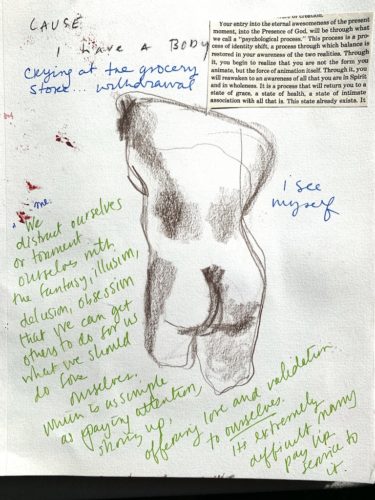 CAUSE
I HAVE A BODY
Crying at the grocery
store... withdrawal
Your entry into the eternal awesomeness of the present
moment, into the Presence of God, will be through what
we call a "psychological process." This process is a pro-
cess of identity shift, a process through which balance is
restored in your awareness of the two realities. Through
it, you begin to realize that you are not the form you
animate, but the force of animation itself. Through it, you
will reawaken to an awareness of all that you are in Spirit
and in wholeness. It is a process that will return you to a
state of grace, a state of health, a state of intimate
association with all that is. This state already exists. It
I see
myself
me.
We
distract ourselves
or torment
ourselves with
the fantasy, illusion,
delusion, obsession
that we can get
others to do for us
what we should
do for
ourselves.
which is as simple
as paying attention,
showing up,
offering love and validation
to ourselves.
It's extremely
difficult, many
pay lip
service to
it.